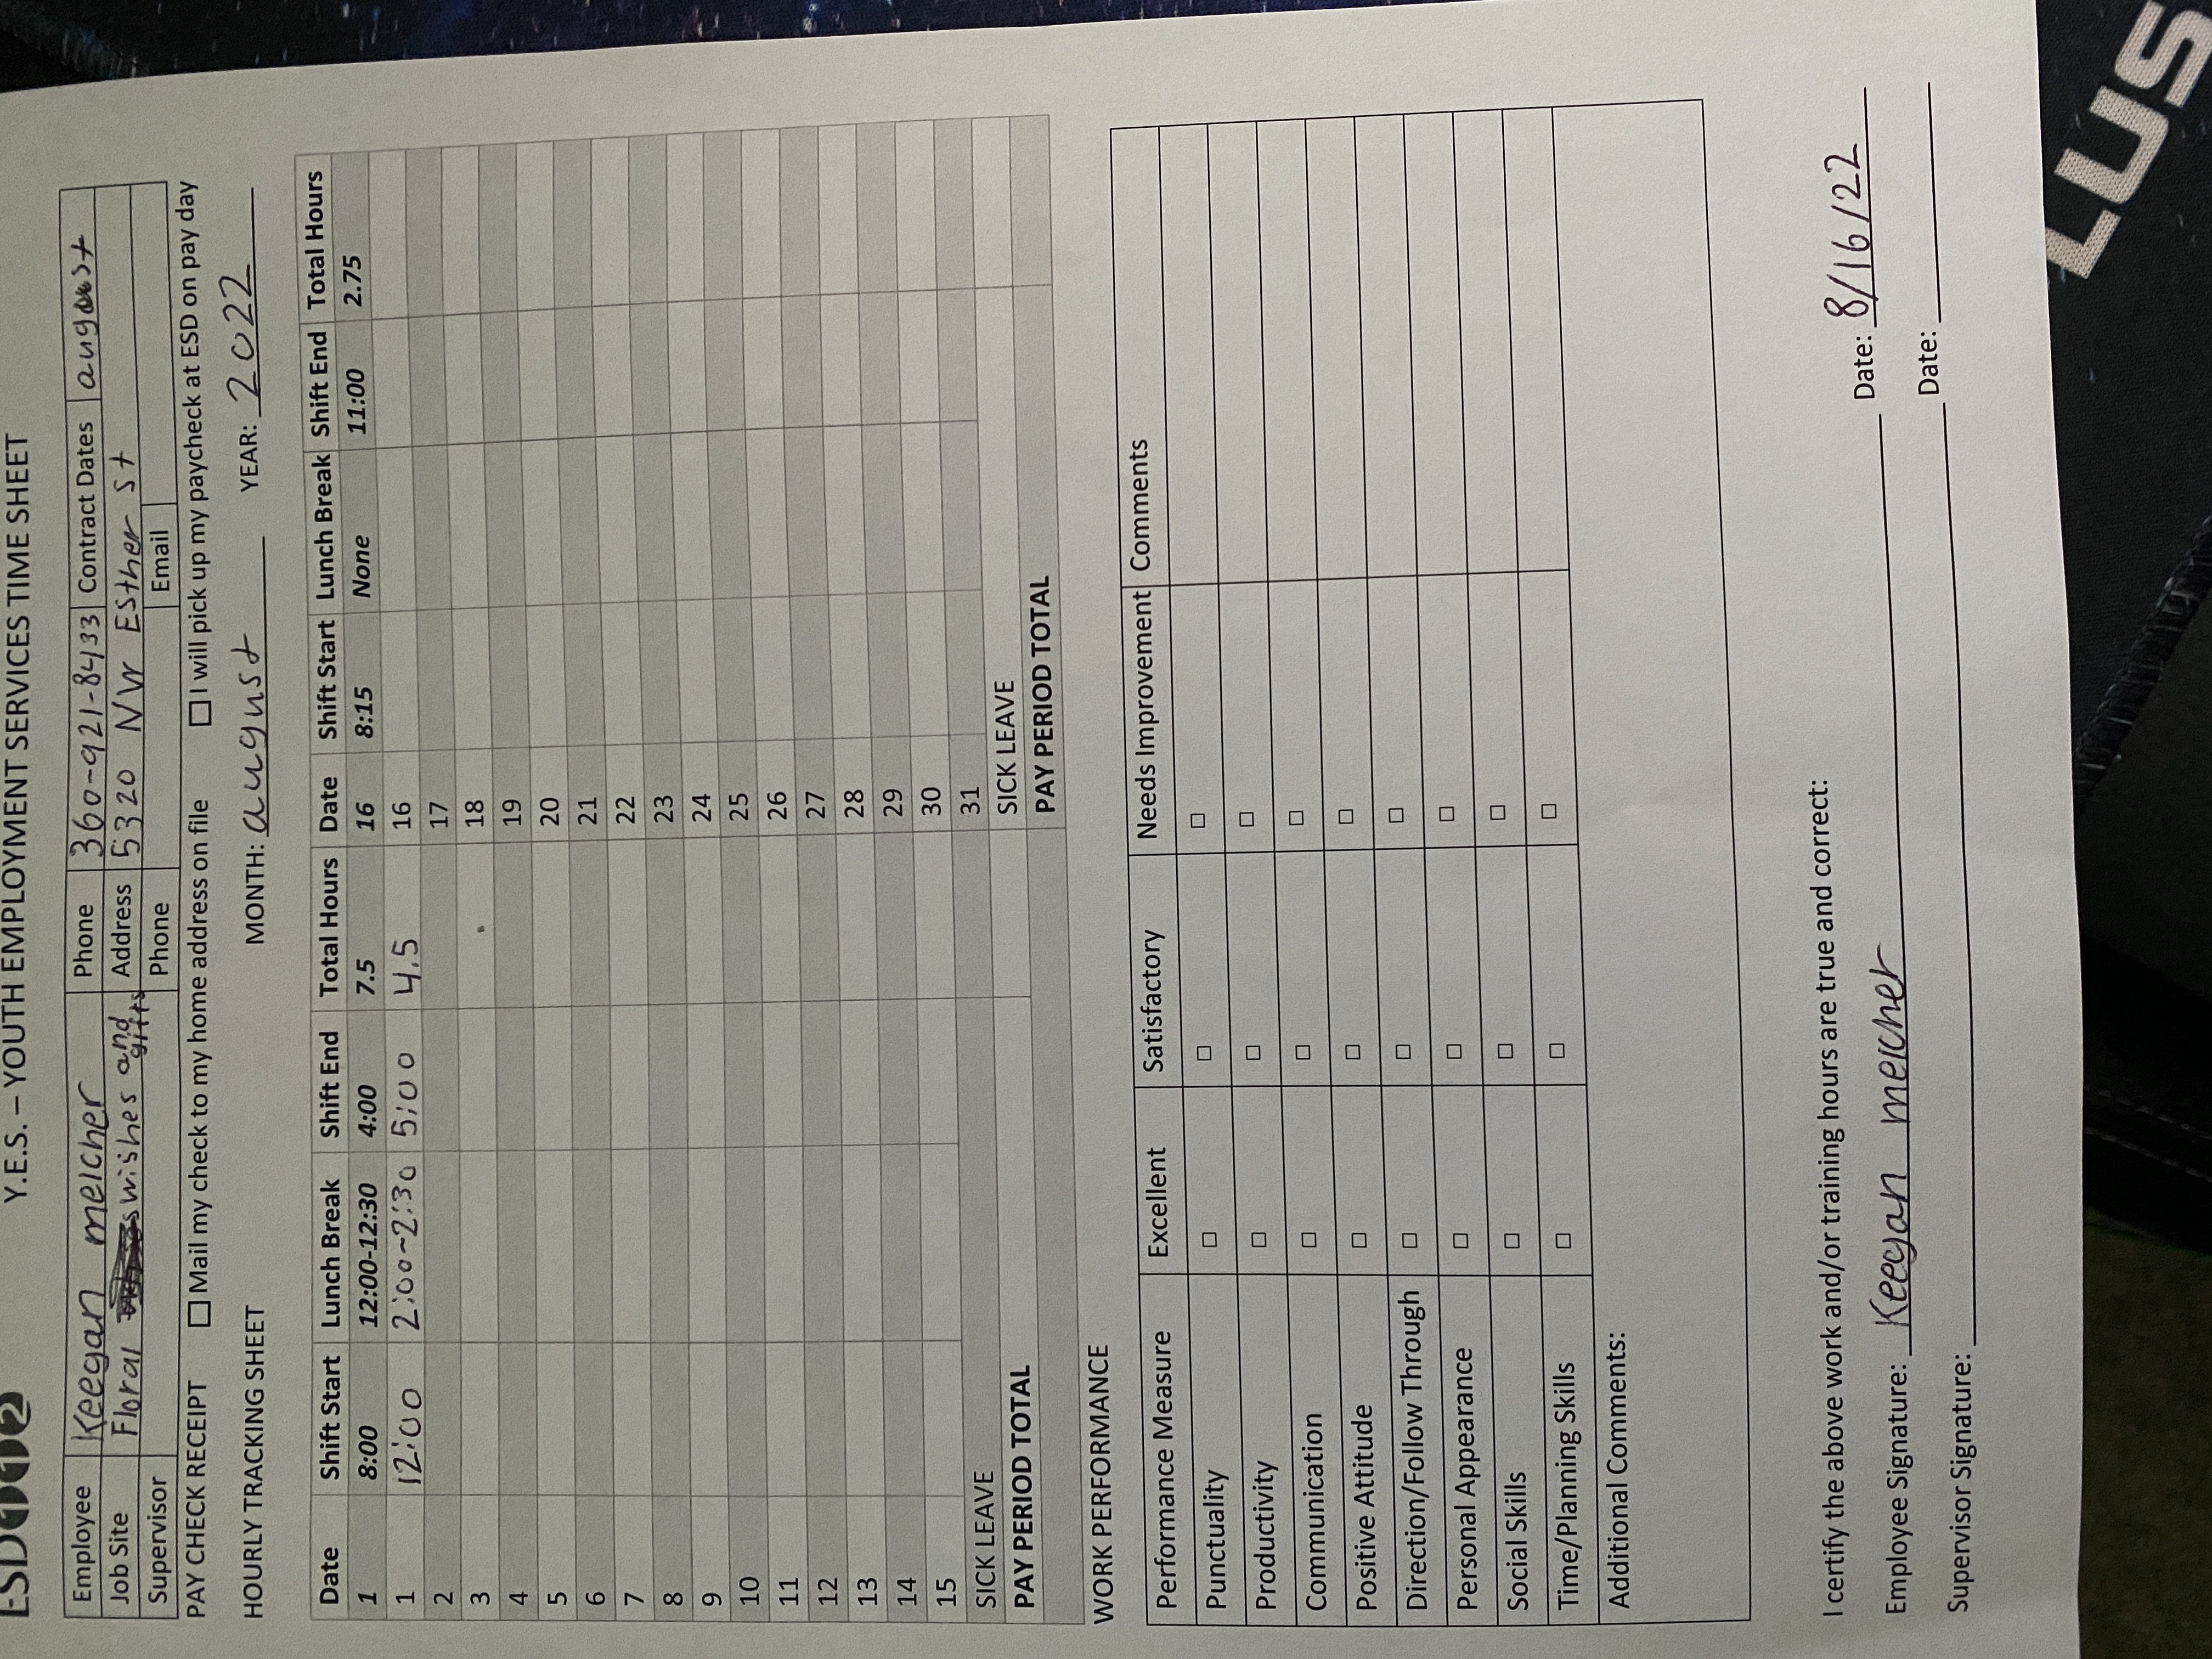 ESD112 Y.E.S. – YOUTH EMPLOYMENT SERVICES TIME SHEET
Employee Keegan melcher Phone 360-921-8433 Contract Dates august
Job Site Floral wishes and gifts Address 5320 NW Esther st
Supervisor Phone Email
PAY CHECK RECEIPT ☐ Mail my check to my home address on file ☐ I will pick up my paycheck at ESD on pay day
HOURLY TRACKING SHEET MONTH: august YEAR: 2022
Date Shift Start Lunch Break Shift End Total Hours Date Shift Start Lunch Break Shift End Total Hours
1 8:00 12:00-12:30 4:00 7.5 16 8:15 None 11:00 2.75
1 12:00 2:00~2:30 5:00 4.5 16
2 17
3 18
4 19
5 20
6 21
7 22
8 23
9 24
10 25
11 26
12 27
13 28
14 29
15 30
SICK LEAVE 31
PAY PERIOD TOTAL SICK LEAVE
PAY PERIOD TOTAL
WORK PERFORMANCE
Performance Measure Excellent Satisfactory Needs Improvement Comments
Punctuality ☐ ☐ ☐
Productivity ☐ ☐ ☐
Communication ☐ ☐ ☐
Positive Attitude ☐ ☐ ☐
Direction/Follow Through ☐ ☐ ☐
Personal Appearance ☐ ☐ ☐
Social Skills ☐ ☐ ☐
Time/Planning Skills ☐ ☐ ☐
Additional Comments:
I certify the above work and/or training hours are true and correct:
Employee Signature: Keegan melcher Date: 8/16/22
Supervisor Signature: Date:
LUS